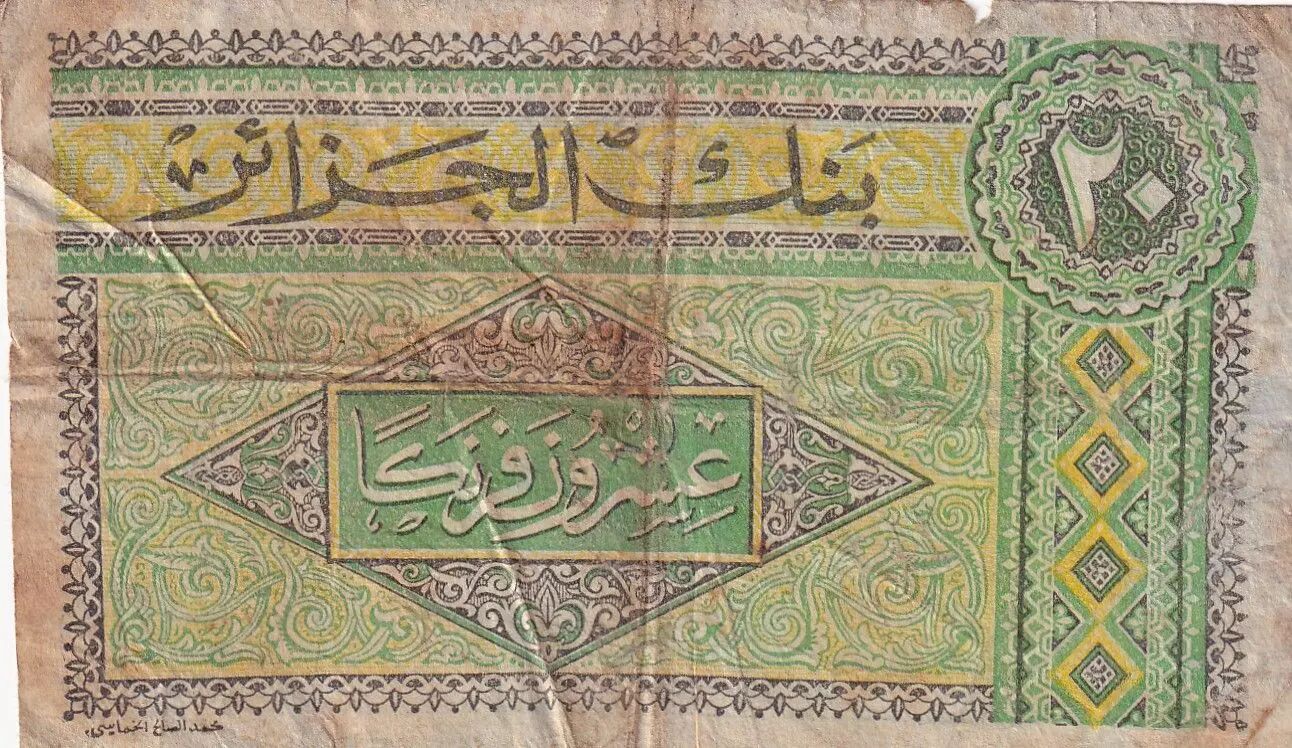 بنك الجزائر
٢٠
عشرون فرنكا
محمد الصالح الخماسي